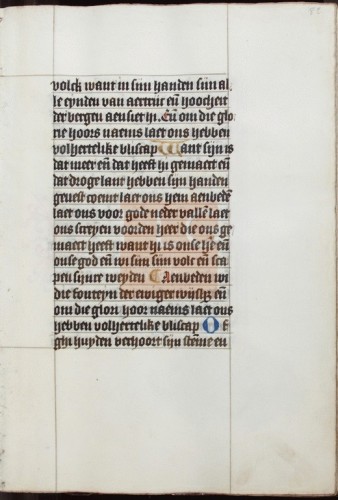 volck want in sijn handen sijn al
le eynden van aertrijc eñ hoocheit
der bergen aensiet hi. Eñ om die glo
rie hoors naems laet ons hebben
volhertelike bliscap Want sijn is
dat meer eñ dat heeft hi gemaect eñ
dat droge lant hebben sijn handen
gevest coemt laet ons hem aenbedē
laet ons voor gode neder vallē laet
ons screyen voorden heer die ons ge
maect heeft want hi is onse hē eñ
onse god eñ wi sijn sijn volc eñ sca
pen sijnre weyden Aenbeden wi
die fonteyn der ewiger wijsh; eñ
om die glori hoor naems laet ons
hebben volhertelike bliscap Of
ghi huyden verhoort sijn stēme en